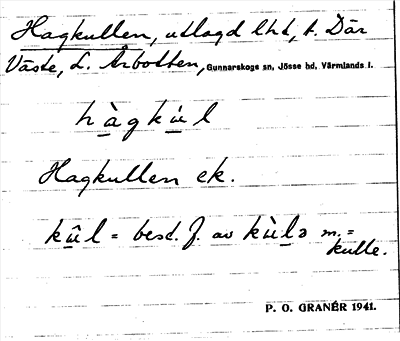 Hagkullen, utlagd lht, t. Där
Väste, L. Årbotten, Gunnarskogs sn, Jösse hd, Värmlands l.
hàgkùl
Hagkullen ek.
kûl = best. f. av kùlə m. =
kulle.
P. O. GRANÉR 1941.